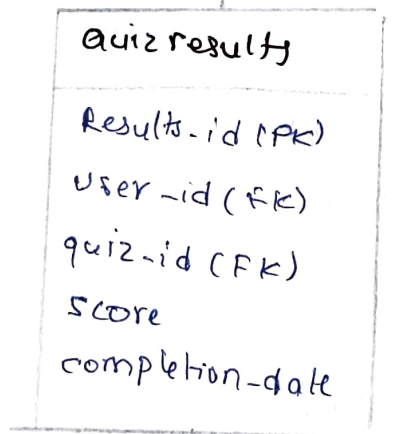 Quiz results
Results-id (PK)
User-id (FK)
quiz-id (FK)
score
completion-date